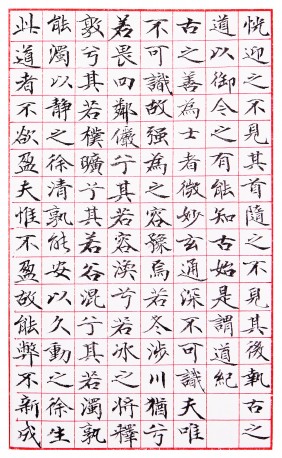 恍迎之不見其首隨之不見其後執古之
道以御今之有能知古始是謂道紀
古之善為士者微妙玄通深不可識夫唯
不可識故强為之容豫焉若冬涉川猶兮
若畏四鄰儼兮其若容渙兮若冰之將釋
敦兮其若樸曠兮其若谷混兮其若濁孰
能濁以靜之徐清孰能安以久動之徐生
此道者不欲盈夫惟不盈故能弊不新成